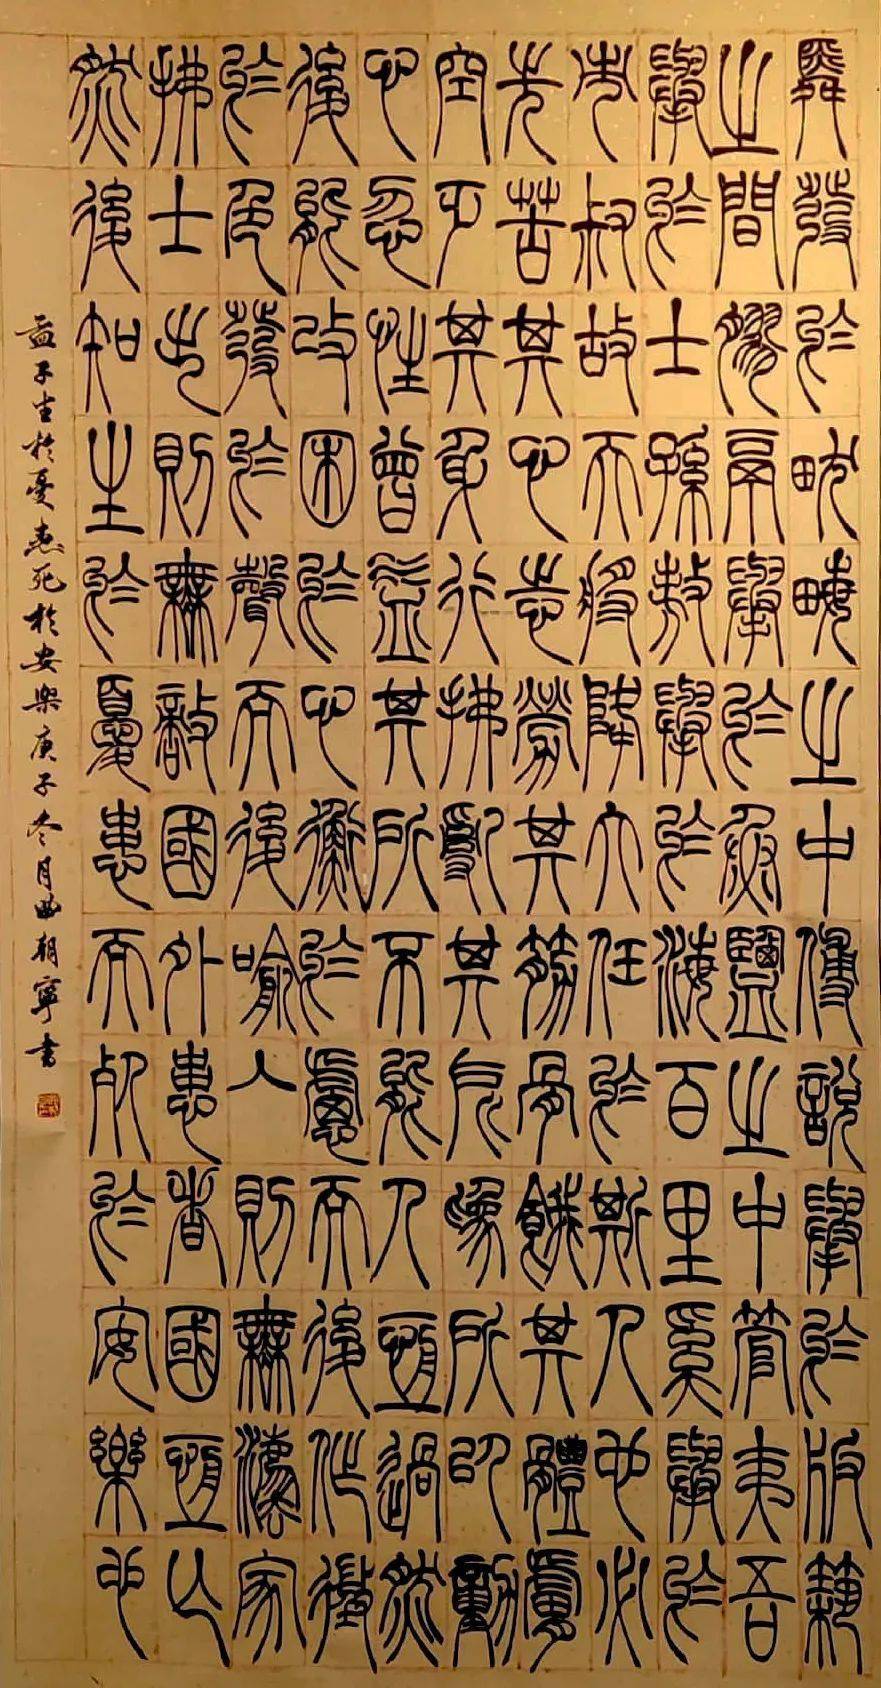 舜發於畎畝之中傅說舉於版築
之間膠鬲舉於魚鹽之中管夷吾
舉於士孫敖舉於海百里奚舉於
市叔故天將降大任於斯人也必
先苦其心志勞其筋骨餓其體膚
空乏其身行拂亂其所爲所以動
心忍性曾益其所不能人恒過然
後能改困於心衡於慮而後作徵
於色發於聲而後喻人則無法家
拂士出則無敵國外患者國恒亡
然後知生於憂患而死於安樂也
孟子生於憂患死於安樂庚子冬月曲朝寧書